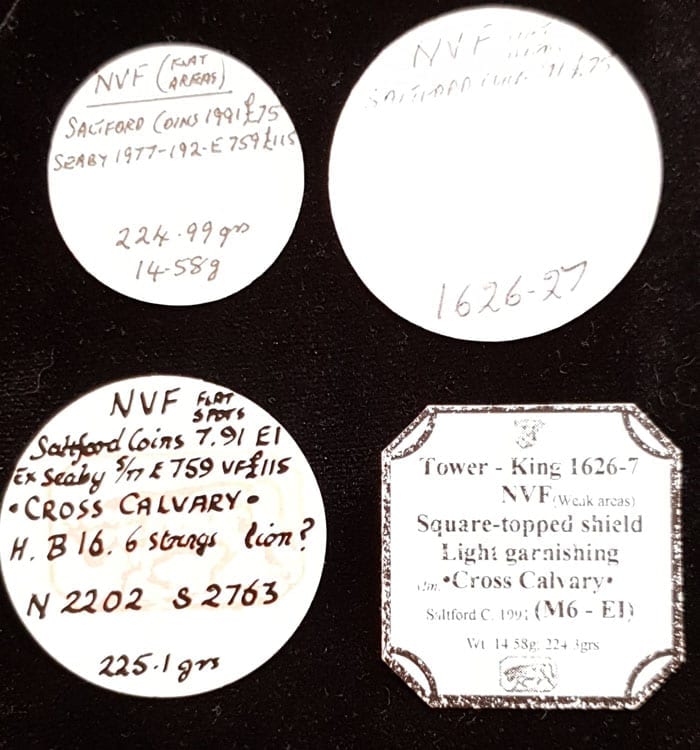 NVF (FLAT
AREAS)
SALTFORD COINS 1991 £75
SEABY 1977-192-E759 £115
224.99 grs
14-58g
NVF
SALTFORD COINS 91 £75
1626-27
NVF FLAT
SPOTS
Saltford Coins 7.91 E1
Ex Seaby 5/77 E759 VF £115
•CROSS CALVARY•
H. B16. 6 strings lion?
N 2202 S 2763
225.1 grs
Tower - King 1626-7
NVF (Weak areas)
Square-topped shield
Light garnishing
•Cross Calvary•
Saltford C. 1991 (M6 - EI)
Wt. 14.58g. 224.3grs